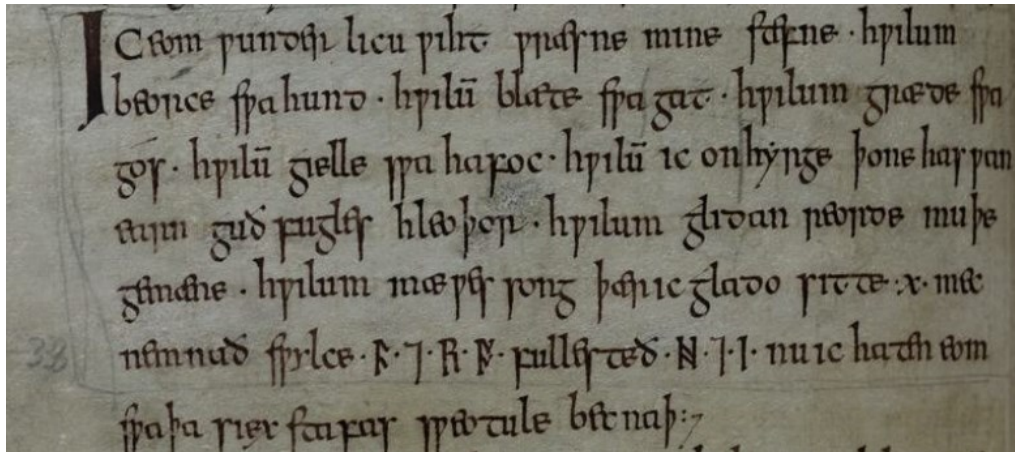 IC eom ƿunderlicu ƿiht ƿræsne mine stefne · hƿilum
beorce sƿa hund · hƿilū blæte sƿa gat · hƿilum græde sƿa
gos · hƿilū gielle sƿa hafoc · hƿilū ic onhyrge þone hasƿan
earn guð fugles hleoþor · hƿilum glidan reorde muþe
gemæne · hƿilum mæƿes song þær ic glado sitte ·x· mec
nemnað sƿylce ·ᚫ·⁊·ᚱ·ᚩ· fullesteð ·ᚻ·⁊·ᛁ· nu ic haten eom
sƿa þa siex stafas sƿeotule becnaþ:7